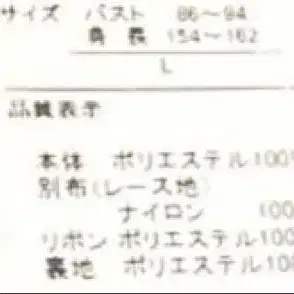 サイズ バスト 86～94
身長 154～162
L
品質表示
本体 ポリエステル100%
別布(レース地)
ナイロン 100
リボン ポリエステル100
裏地 ポリエステル100